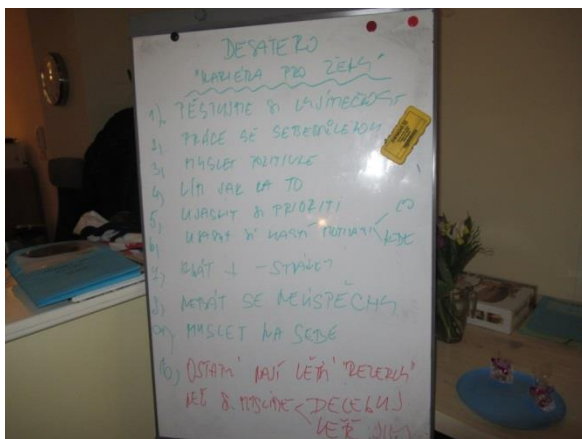 DESATERO
"KARIÉRA PRO ŽENY"
1). PĚSTUJME SI VÝJIMEČNOST
2, PRÁCE SE SEBEDŮVĚROU
3, MYSLET POZITIVNĚ
4, VÍM JAK NA TO
5, UJASNIT SI PRIORITY
6, UJASNIT SI VLASTNÍ CO
KDE
7, BRÁT
8, NEBÁT SE NEÚSPĚCHU
9, MYSLET NA SEBE
10, OSTATNÍ MAJÍ VĚTŠÍ "REZERVY"
NEŽ SI MYSLÍME DELEGUJ
VĚŘ JIM